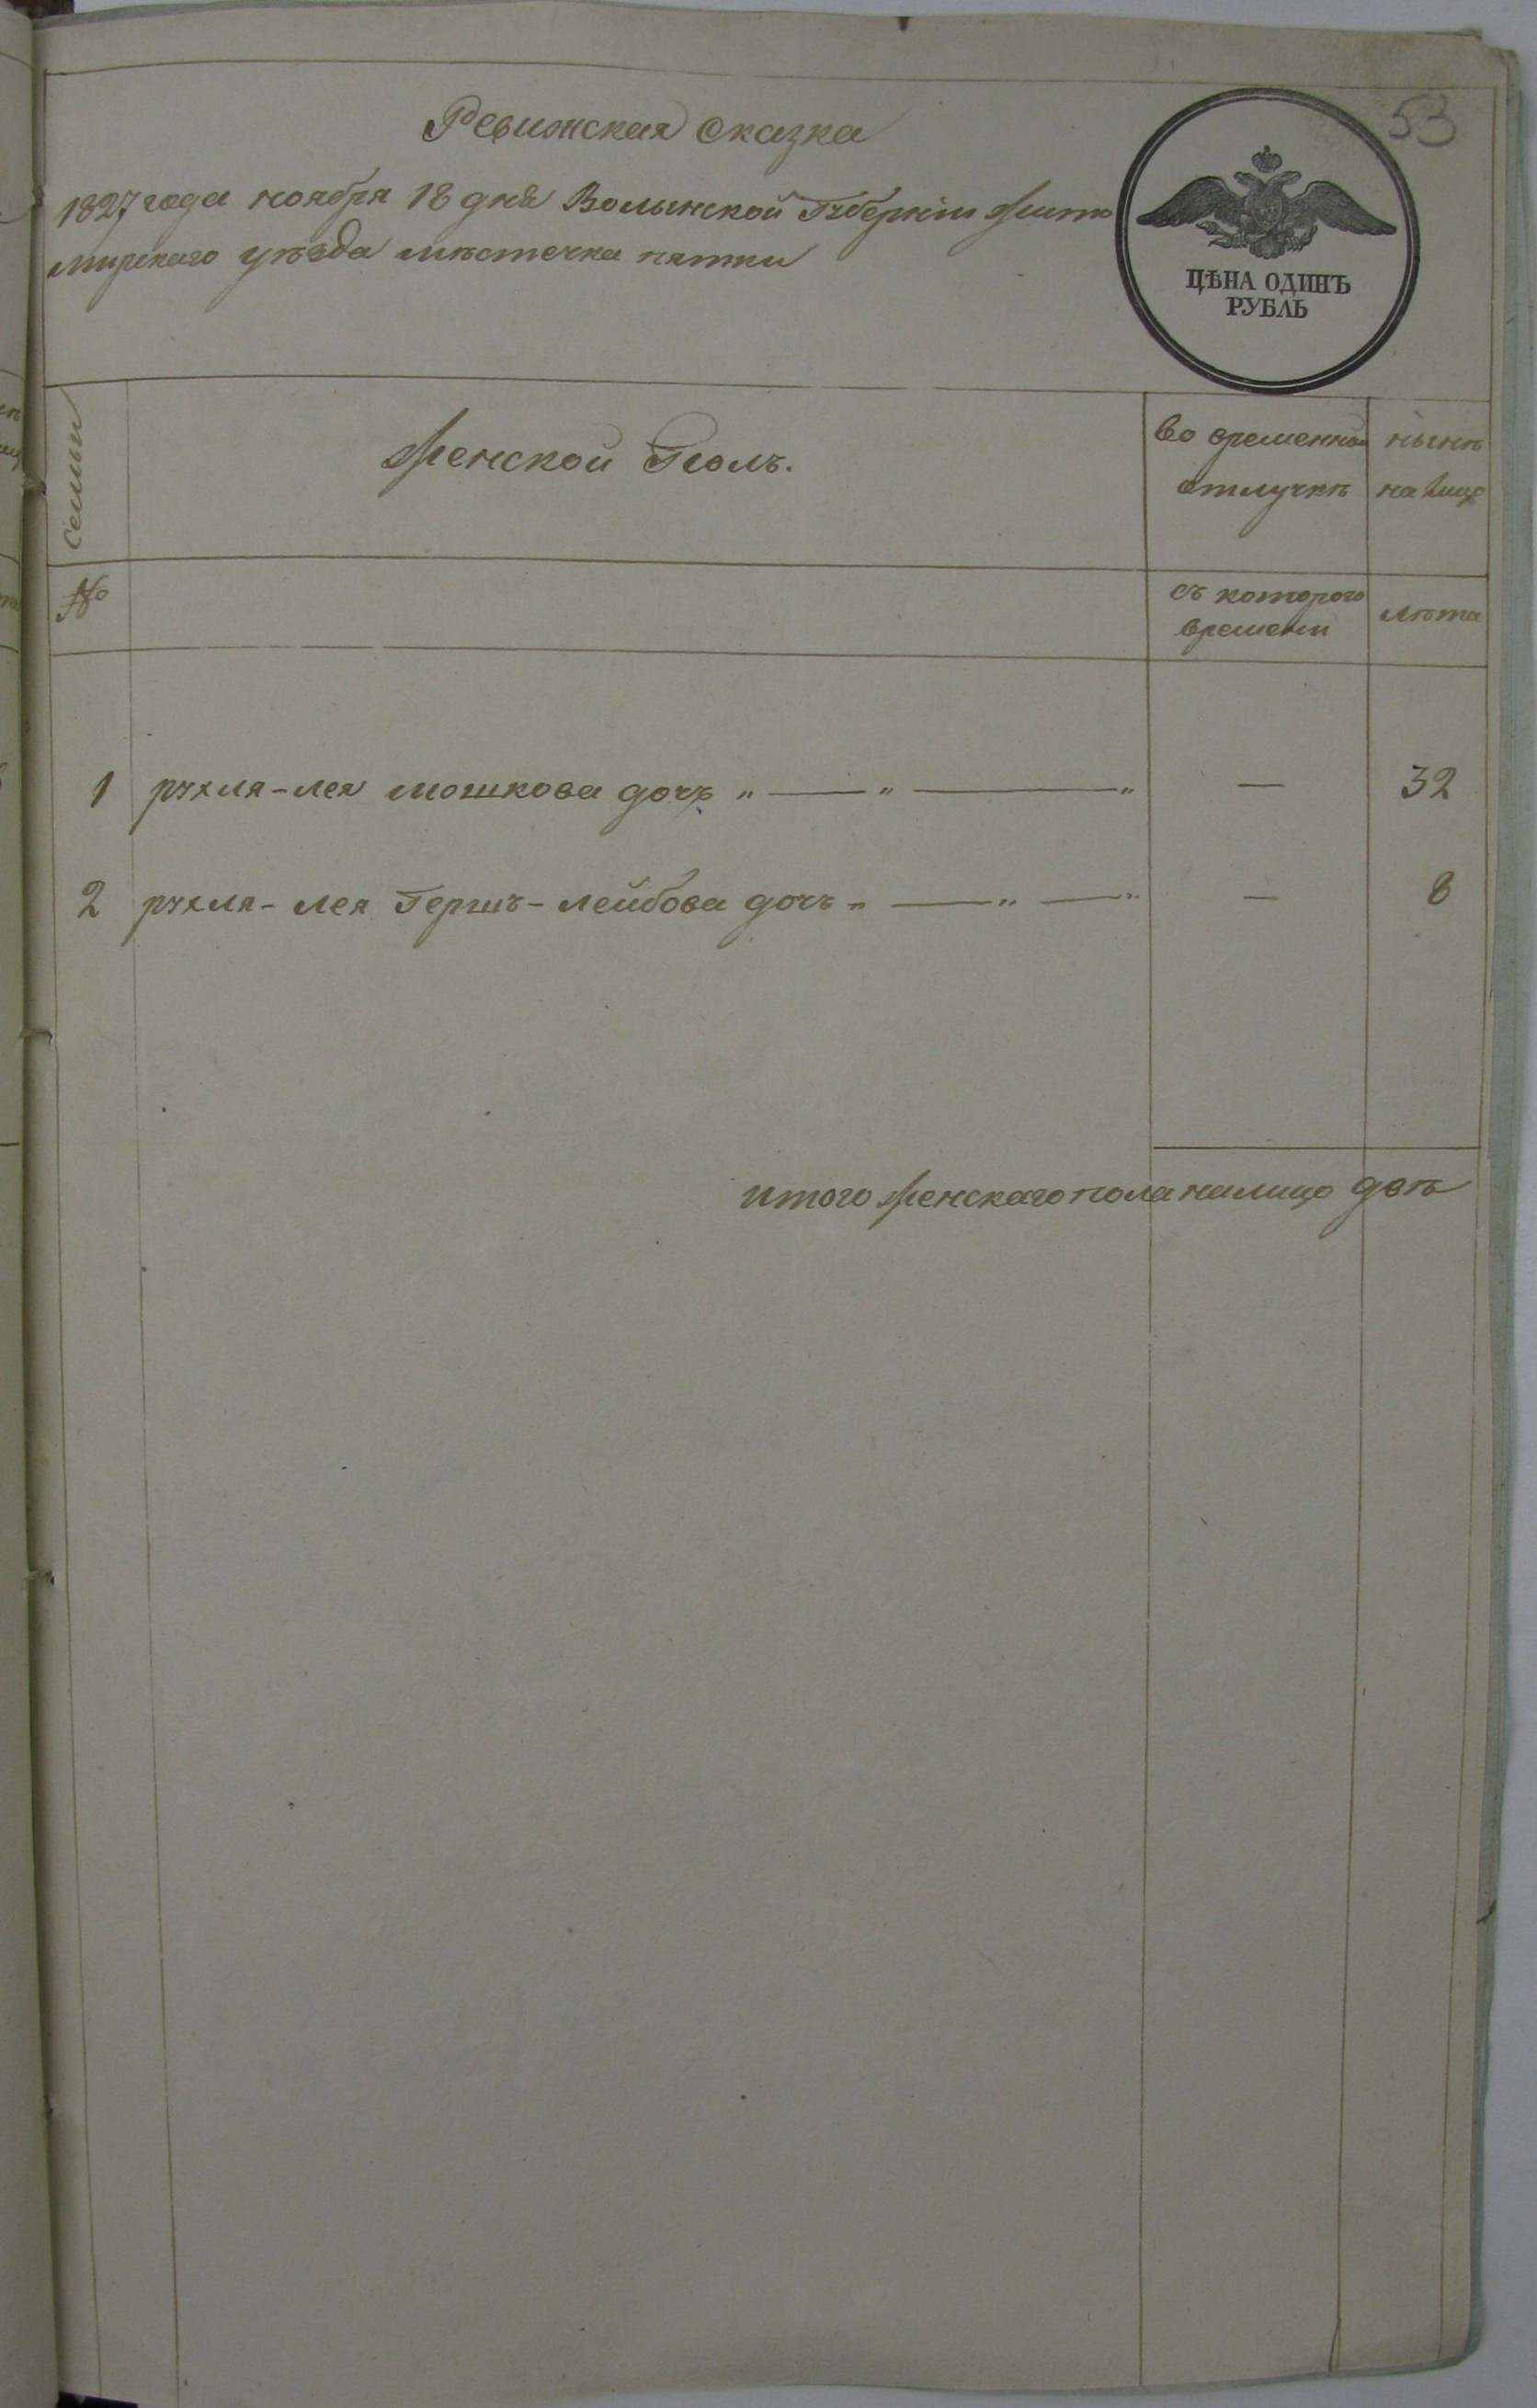 53
Ревижская сказка
1827 года ноября 18 дня Волынской Губернiи Жито
мирскаго уѣзда мѣстечка пятки
ЦѢНА ОДИНЪ
РУБЛЬ
Семьи
Женской Полъ.
во временной
отлучкѣ
нынѣ
на лицо
№
съ которого
времени
лѣта
1 рухля-лея мошкова дочь „ — „ — „ — 32
2 рухля-лея Гершъ-лейбова дочъ „ — „ — „ — 8
итого женскаго пола налицо двѣ